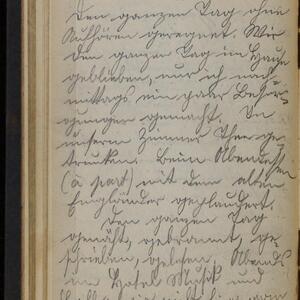 Den ganzen Tag ohne
Aufhören geregnet. Wir
den ganzen Tag im Hause
geblieben, nur ich nach-
mittags ein paar Besor-
gungen gemacht. In
unserm Zimmer Thee ge-
trunken. Beim Abendessen
(à part) mit dem alten
Engländer geplaudert.
Den ganzen Tag
genäht, gebrannt, ge-
schrieben, gelesen. Abends
im Hotel Musik und